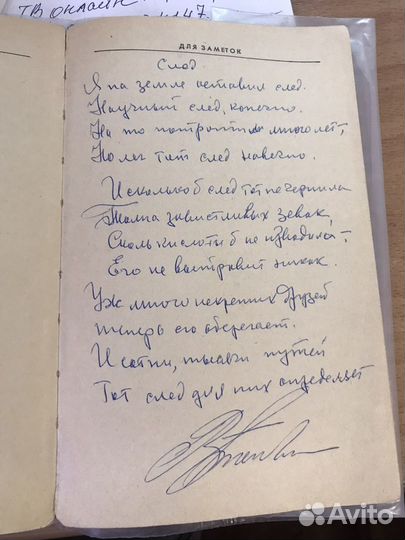 ТВ онлайн
147.
ДЛЯ ЗАМЕТОК
След
Я на земле оставил след.
Научный след, конечно.
На то потратил много лет,
Но лег тот след навечно.
И сколько б след тот не чернила
Толпа завистливых зевак,
Сколь кислоты б не изводила,
Его не вытравит никак.
Уж много искренних друзей
теперь его оберегает.
И сотни, тысячи путей
Тот след для них определяет
Avito